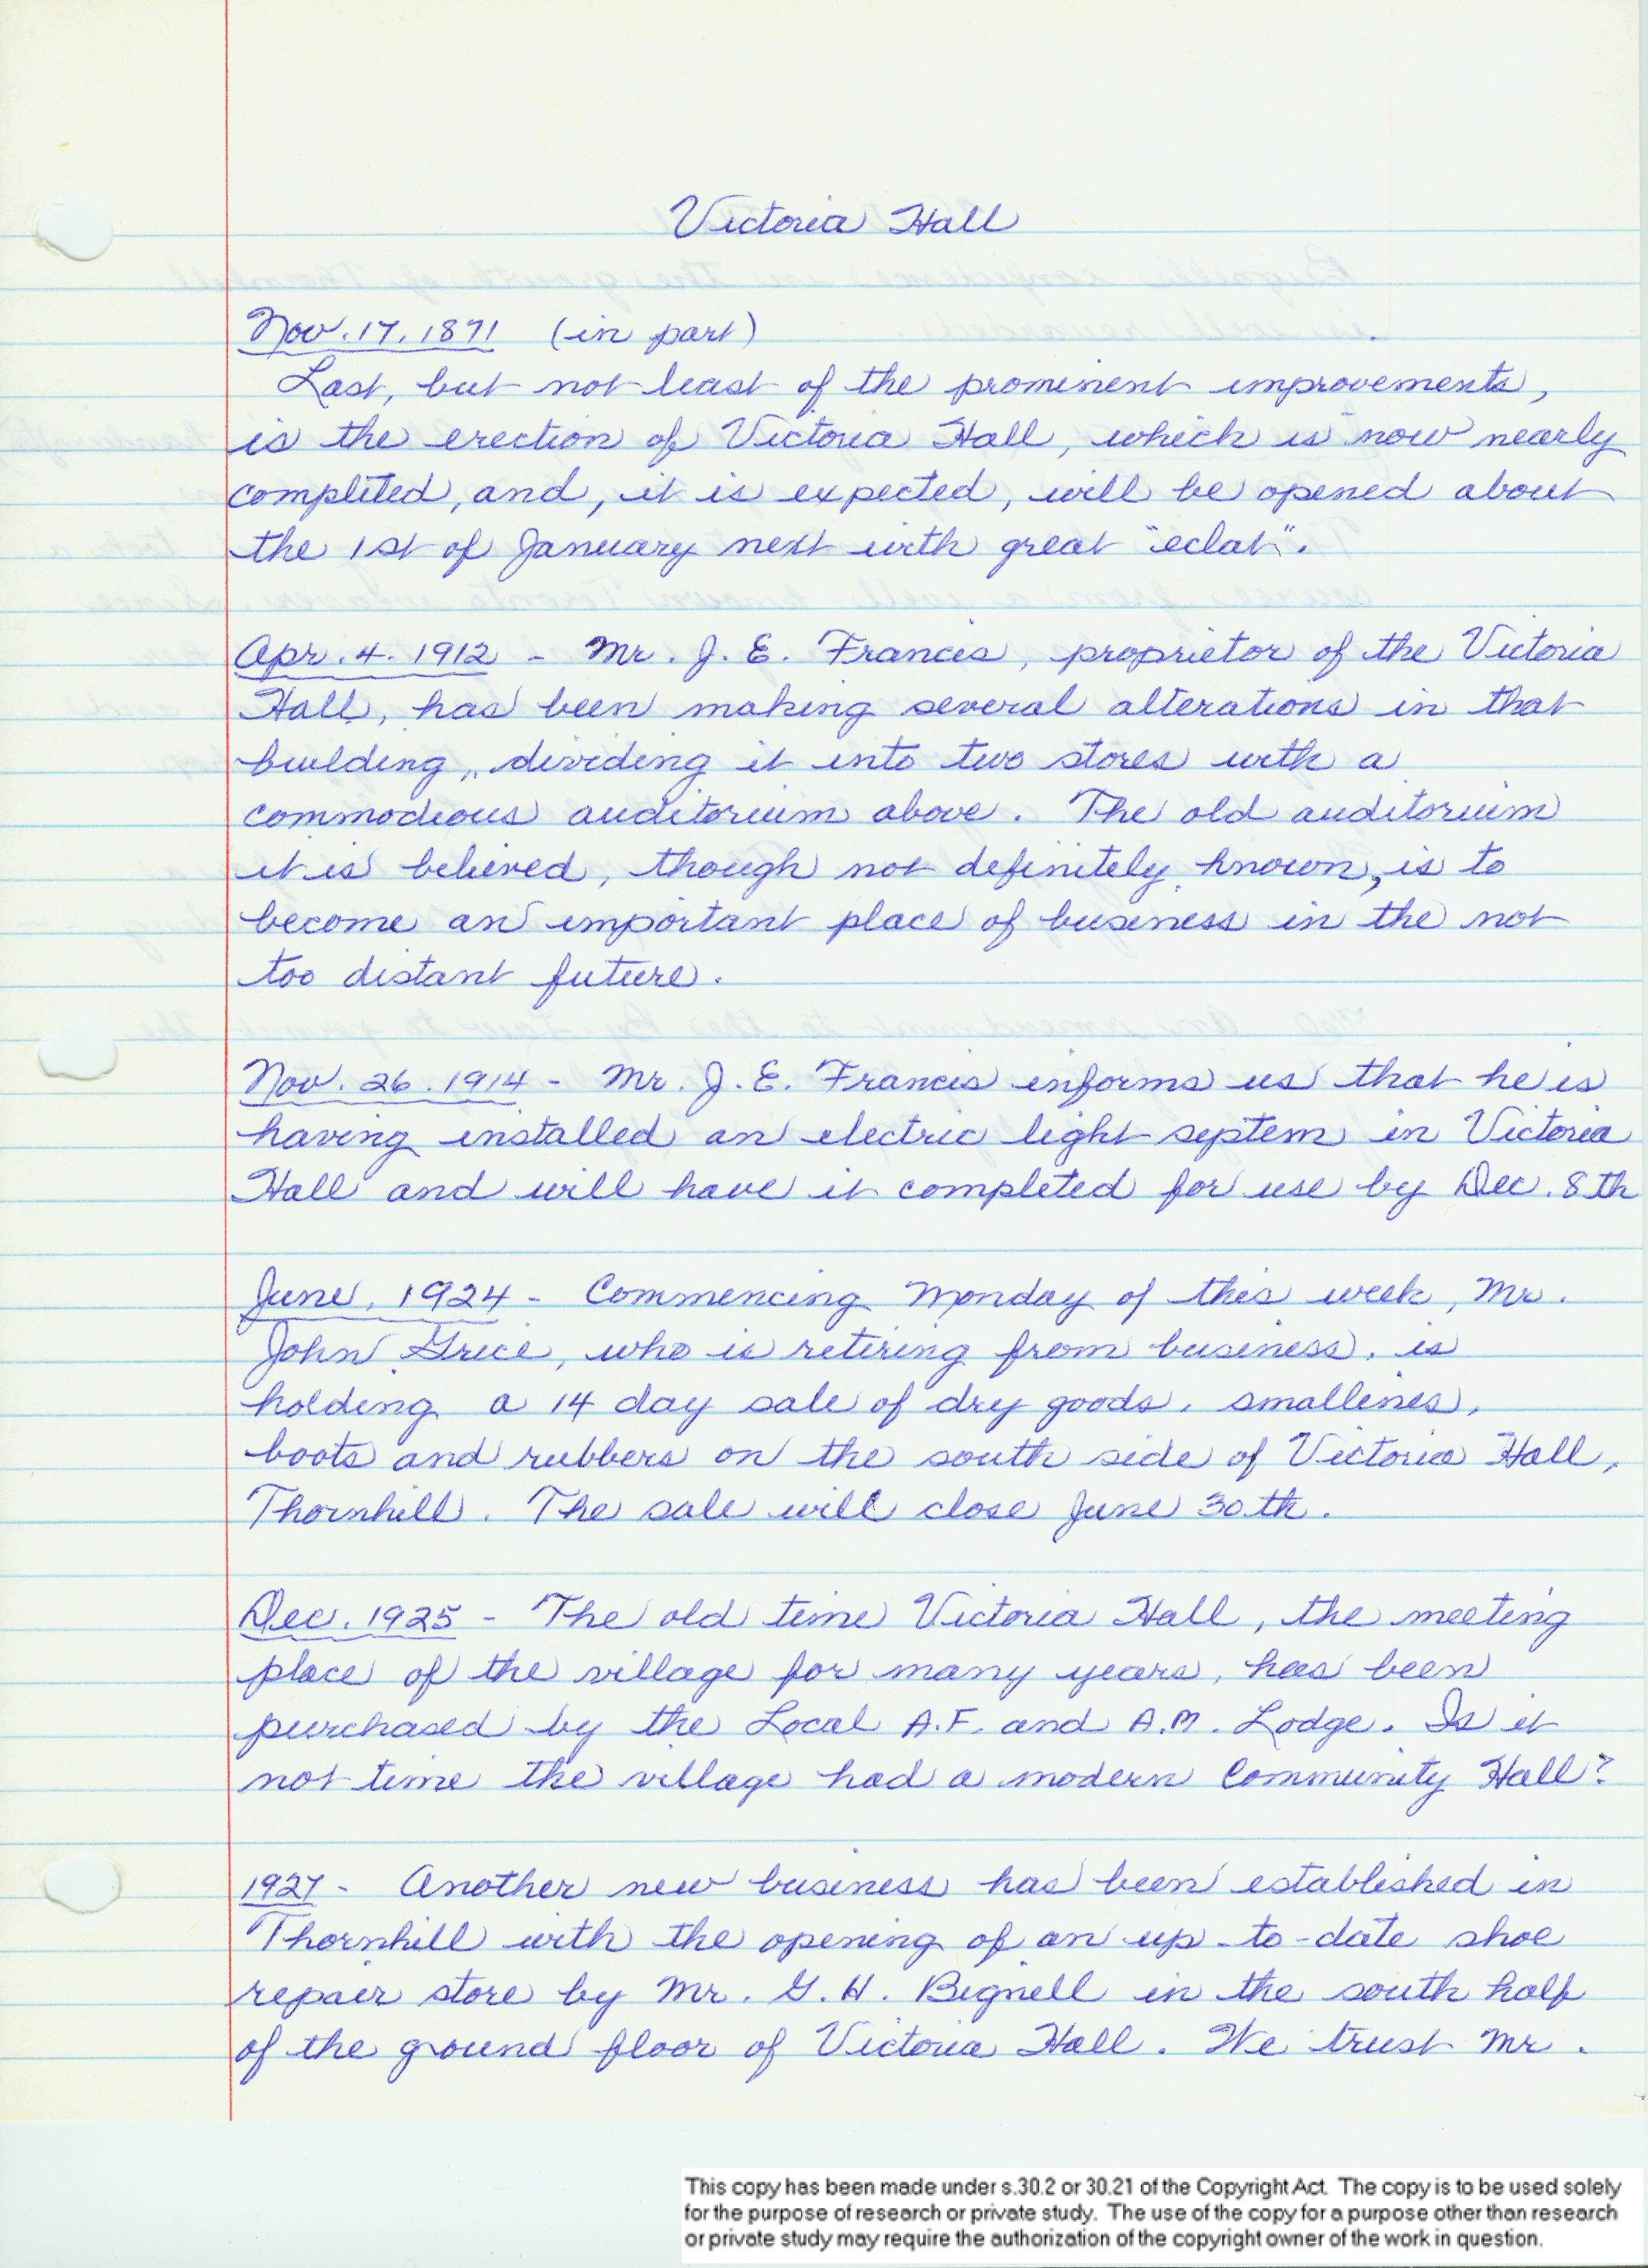 Victoria Hall
Nov. 17. 1871 (in part)
Last, but not least of the prominent improvements,
is the erection of Victoria Hall, which is now nearly
completed, and, it is expected, will be opened about
the 1st of January next with great "eclat".
Apr. 4. 1912 - Mr. J. E. Francis, proprietor of the Victoria
Hall, has been making several alterations in that
building, dividing it into two stores with a
commodious auditorium above. The old auditorium
it is believed, though not definitely known, is to
become an important place of business in the not
too distant future.
Nov. 26. 1914 - Mr. J. E. Francis informs us that he is
having installed an electric light septem in Victoria
Hall and will have it completed for use by Dec. 8th
June, 1924 - Commencing Monday of this week, Mr.
John Grice, who is retiring from business, is
holding a 14 day sale of dry goods, smallines,
boots and rubbers on the south side of Victoria Hall,
Thornhill. The sale will close June 30th.
Dec. 1925 - The old time Victoria Hall, the meeting
place of the village for many years, has been
purchased by the Local A.F. and A.M. Lodge. Is it
not time the village had a modern Community Hall?
1927 - Another new business has been established in
Thornhill with the opening of an up-to-date shoe
repair store by Mr. G. H. Bignell in the south half
of the ground floor of Victoria Hall. We trust Mr.
This copy has been made under s.30.2 or 30.21 of the Copyright Act. The copy is to be used solely
for the purpose of research or private study. The use of the copy for a purpose other than research
or private study may require the authorization of the copyright owner of the work in question.